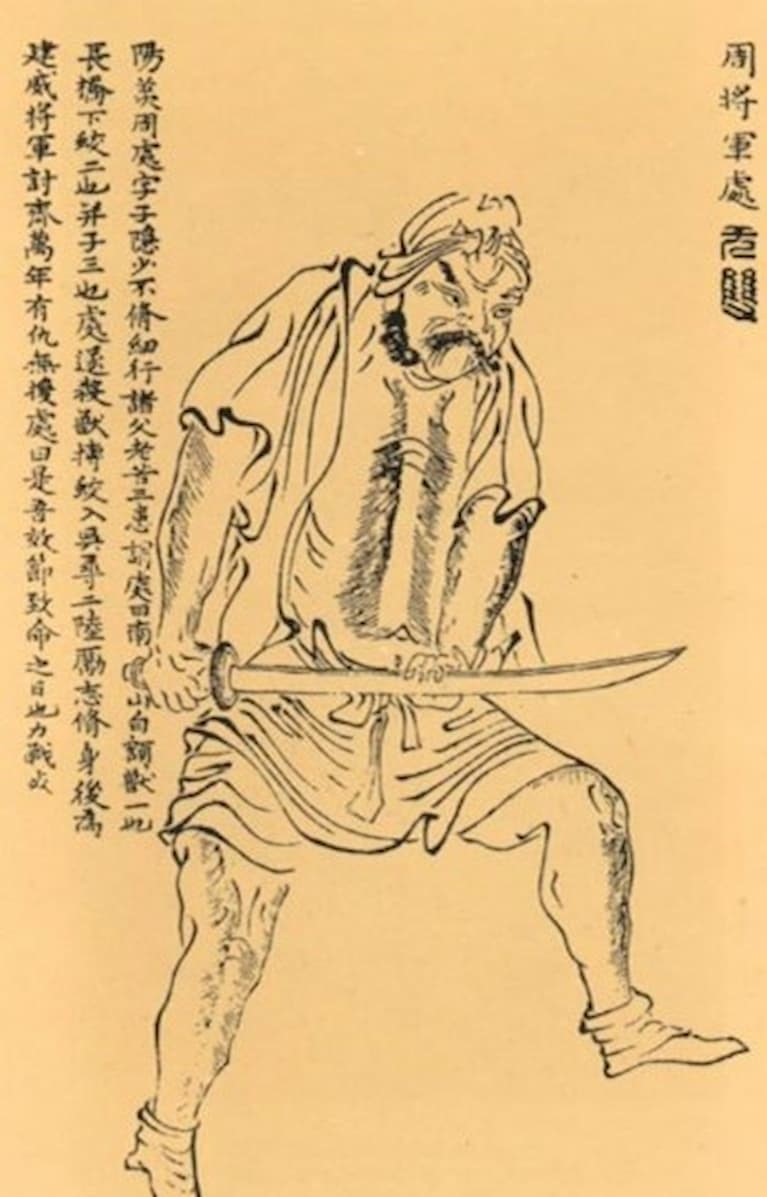 周將軍處
无雙
陽羨周處字子隱少不脩細行諸父老苦三患謂處曰南山白額獸一也
長橋下蛟二也并子三也處遂殺獸搏蛟入吳尋二陸勵志脩身後為
建威將軍討齊萬年有仇無援處曰是吾效節致命之日也力戰